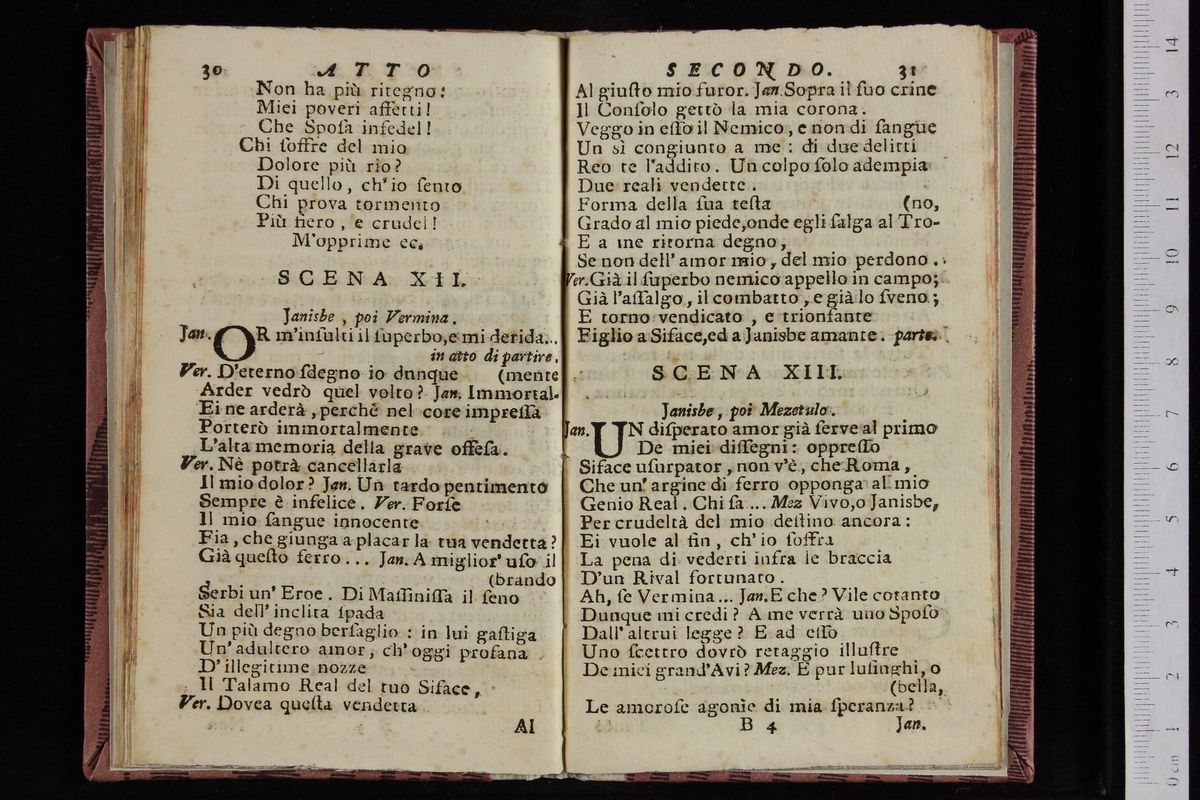 30 ATTO
Non ha più ritegno:
Miei poveri affetti!
Che Spoſa infedel!
Chi ſoffre del mio
Dolore più rio?
Di quello, ch'io ſento
Chi prova tormento
Più fiero, e crudel!
M'opprime ec.
SCENA XII.
Janisbe, poi Vermina.
Jan. OR m'inſulti il ſuperbo, e mi derida...
in atto di partire.
Ver. D'eterno ſdegno io dunque (mente
Arder vedrò quel volto? Jan. Immortal-
Ei ne arderà, perchè nel core impreſſa
Porterò immortalmente
L'alta memoria della grave offeſa.
Ver. Nè potrà cancellarla
Il mio dolor? Jan. Un tardo pentimento
Sempre è infelice. Ver. Forſe
Il mio ſangue innocente
Fia, che giunga a placar la tua vendetta?
Già queſto ferro... Jan. A miglior' uſo il
(brando
Serbi un' Eroe. Di Maſſiniſſa il ſeno
Sia dell' inclita ſpada
Un più degno berſaglio: in lui gaſtiga
Un' adultero amor, ch' oggi profana
D' illegitime nozze
Il Talamo Real del tuo Siface,
Ver. Dovea queſta vendetta
Al
SECONDO. 31
Al giuſto mio furor. Jan. Sopra il ſuo crine
Il Conſolo gettò la mia corona.
Veggo in eſſo il Nemico, e non di ſangue
Un sì congiunto a me: di due delitti
Reo te l'addito. Un colpo ſolo adempia
Due reali vendette.
Forma della ſua teſta (no,
Grado al mio piede, onde egli ſalga al Tro-
E a me ritorna degno,
Se non dell' amor mio, del mio perdono.
Ver. Già il ſuperbo nemico appello in campo;
Già l'aſſalgo, il combatto, e già lo ſveno;
E torno vendicato, e trionfante
Figlio a Siface, ed a Janisbe amante. parte.
SCENA XIII.
Janisbe, poi Mezetulo.
Jan. UN diſperato amor già ſerve al primo
De miei diſſegni: oppreſſo
Siface uſurpator, non v'è, che Roma,
Che un' argine di ferro opponga al mio
Genio Real. Chi ſa... Mez Vivo, o Janisbe,
Per crudeltà del mio deſtino ancora:
Ei vuole al fin, ch' io ſoffra
La pena di vederti infra le braccia
D'un Rival fortunato.
Ah, ſe Vermina... Jan. E che? Vile cotanto
Dunque mi credi? A me verrà uno Spoſo
Dall' altrui legge? E ad eſſo
Uno ſcettro dovrò retaggio illuſtre
De miei grand'Avi? Mez. E pur luſinghi, o
(bella,
Le amoroſe agonìe di mia ſperanza?
B 4 Jan.
14
13
12
11
10
9
8
7
6
5
4
3
2
1
0 cm